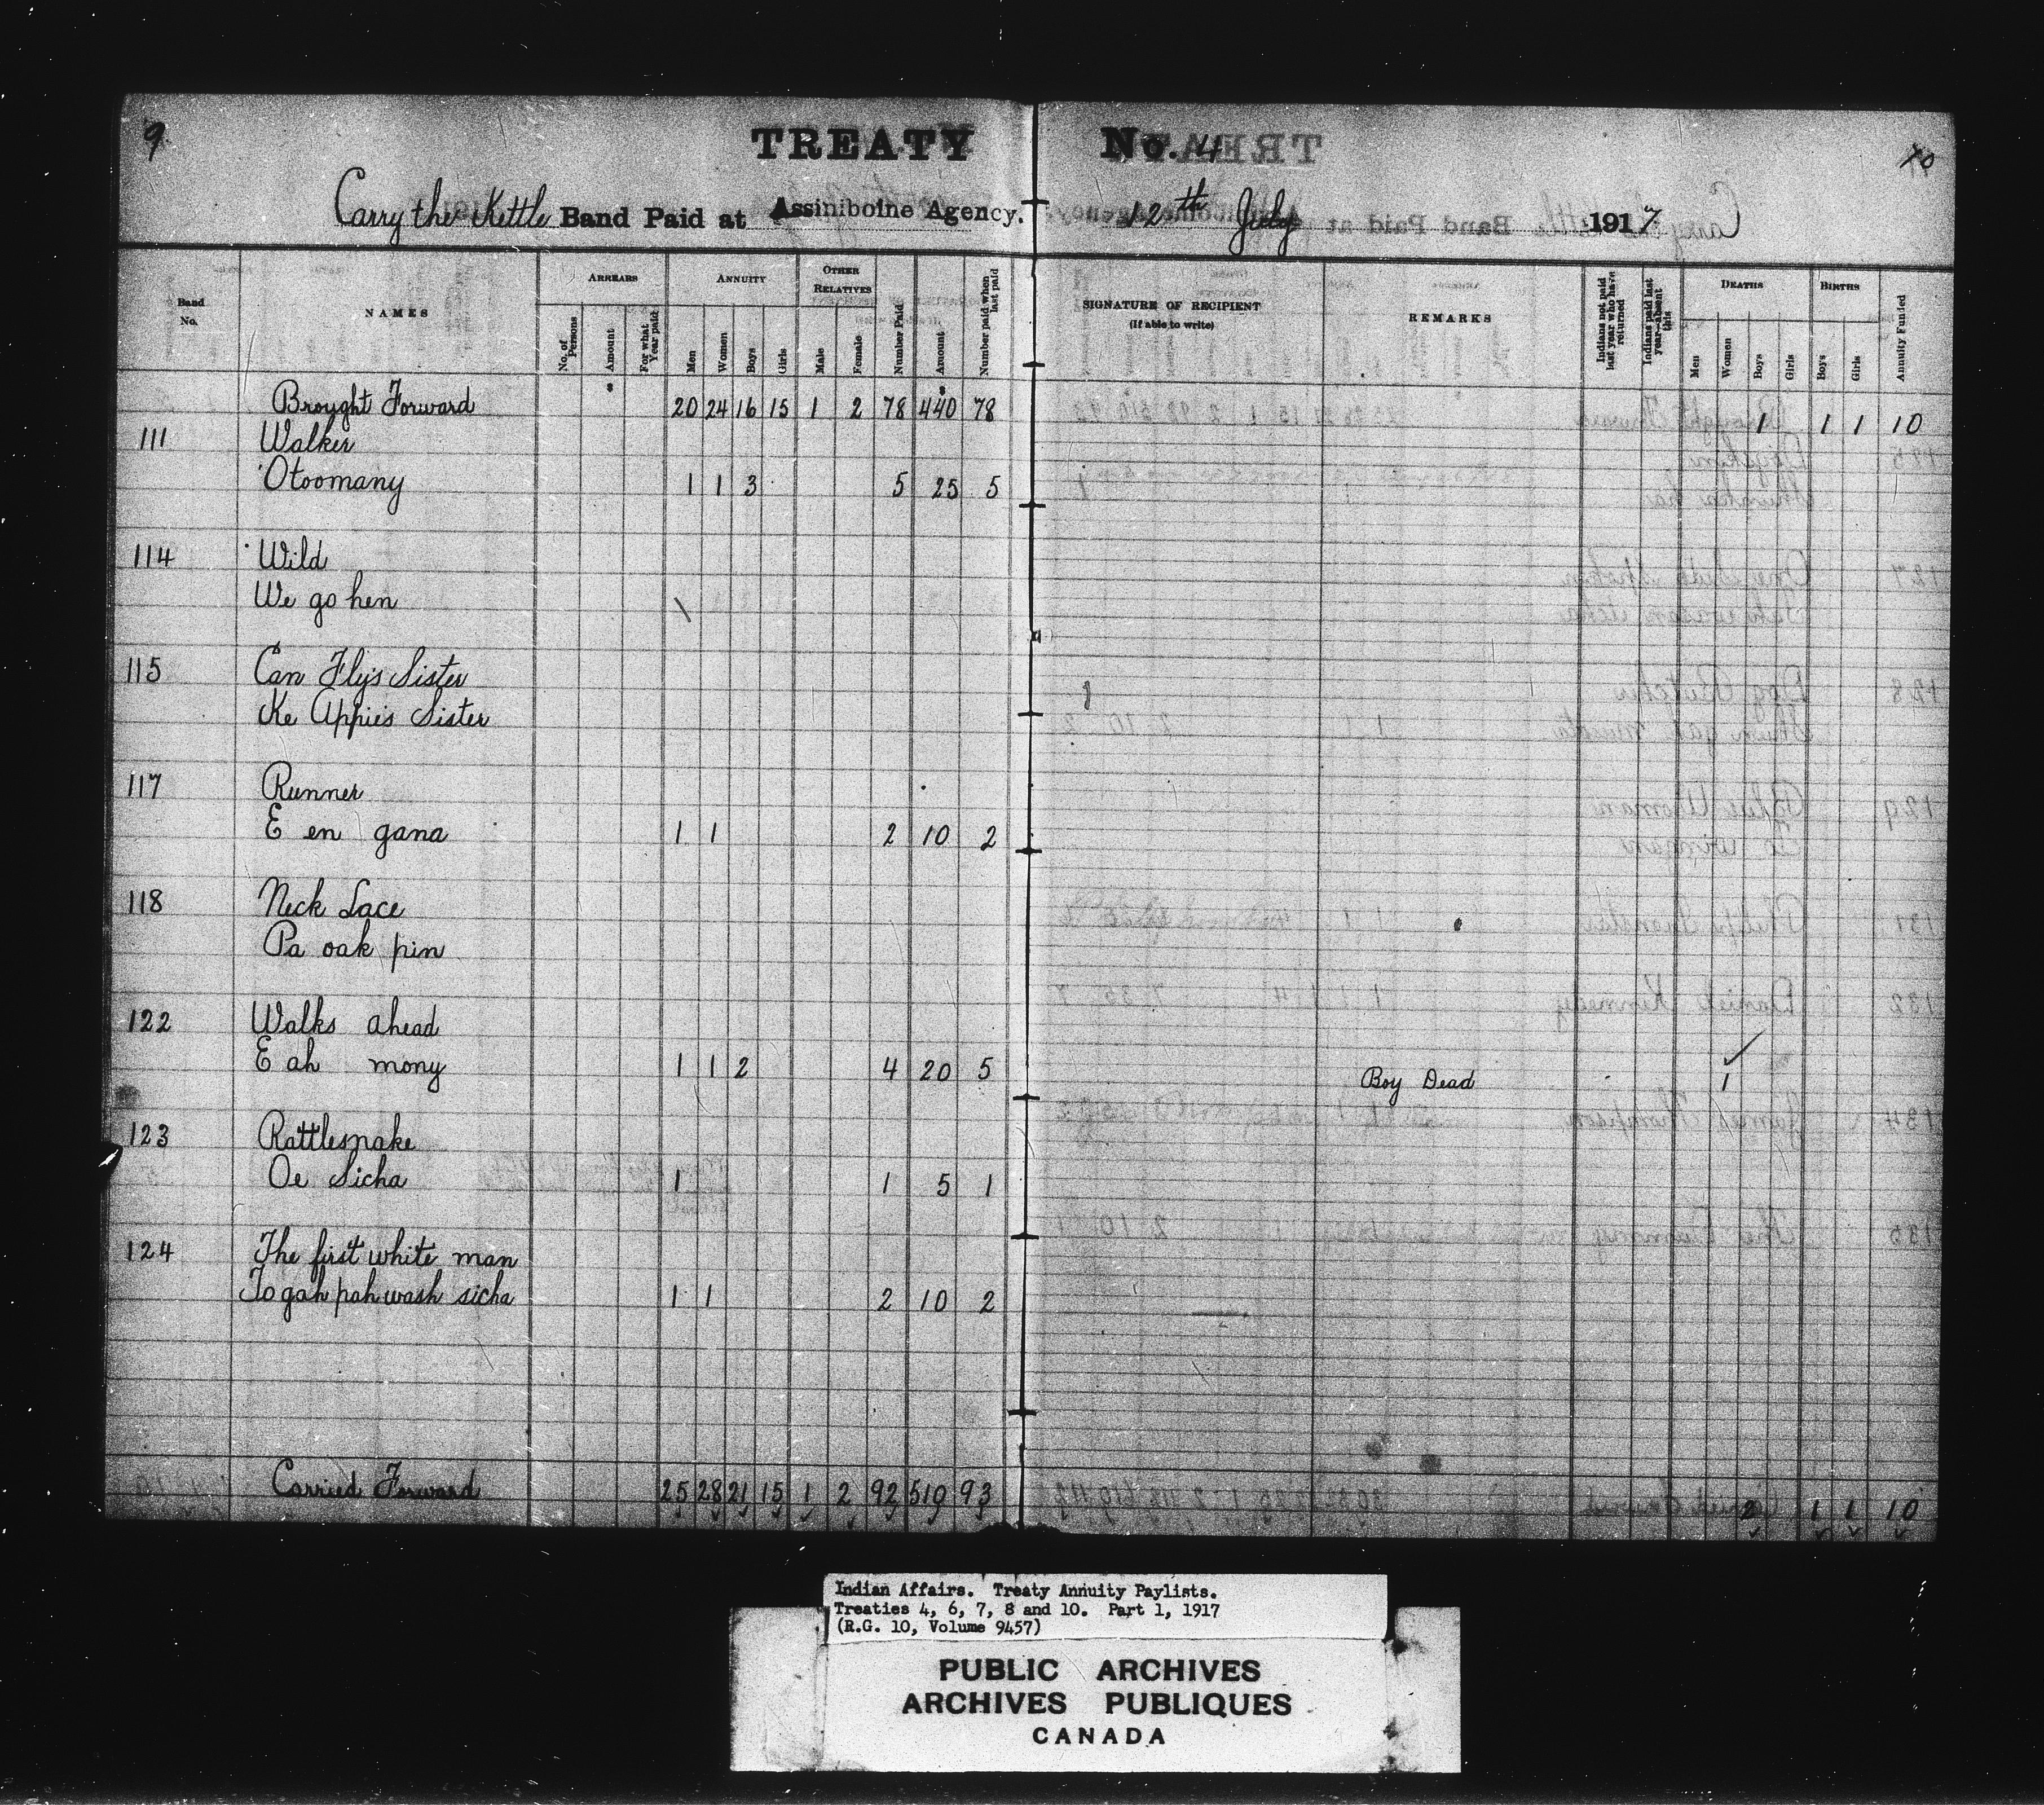 9
TREATY No. 4
10
Carry the Kettle Band Paid at Assiniboine Agency. 12th July 1917
Band No. NAMES ARREARS ANNUITY OTHER RELATIVES Number Paid Amount Number paid when last paid SIGNATURE OF RECIPIENT (If able to write) REMARKS Indians not paid last year who have returned Indians paid last year—absent this DEATHS BIRTHS Annuity Funded
No. of Persons Amount For what Year paid Men Women Boys Girls Male Female Men Women Boys Girls Boys Girls
Brought Forward 20 24 16 15 1 2 78 440 78 1 1 1 10
111 Walker
Otoomany 1 1 3 5 25 5
114 Wild
We go hen \
115 Can Fly's Sister
Ke Appie's Sister
117 Runner
E en gana 1 1 2 10 2
118 Neck Lace
Pa oak pin
122 Walks ahead
E ah mony 1 1 2 4 20 5 Boy Dead 1
123 Rattlesnake
Oe Sicha 1 1 5 1
124 The first white man
To gah pah wash sicha 1 1 2 10 2
Carried Forward 25 28 21 15 1 2 92 510 93 2 1 1 10
Indian Affairs. Treaty Annuity Paylists.
Treaties 4, 6, 7, 8 and 10. Part 1, 1917
(R.G. 10, Volume 9457)
PUBLIC ARCHIVES
ARCHIVES PUBLIQUES
CANADA